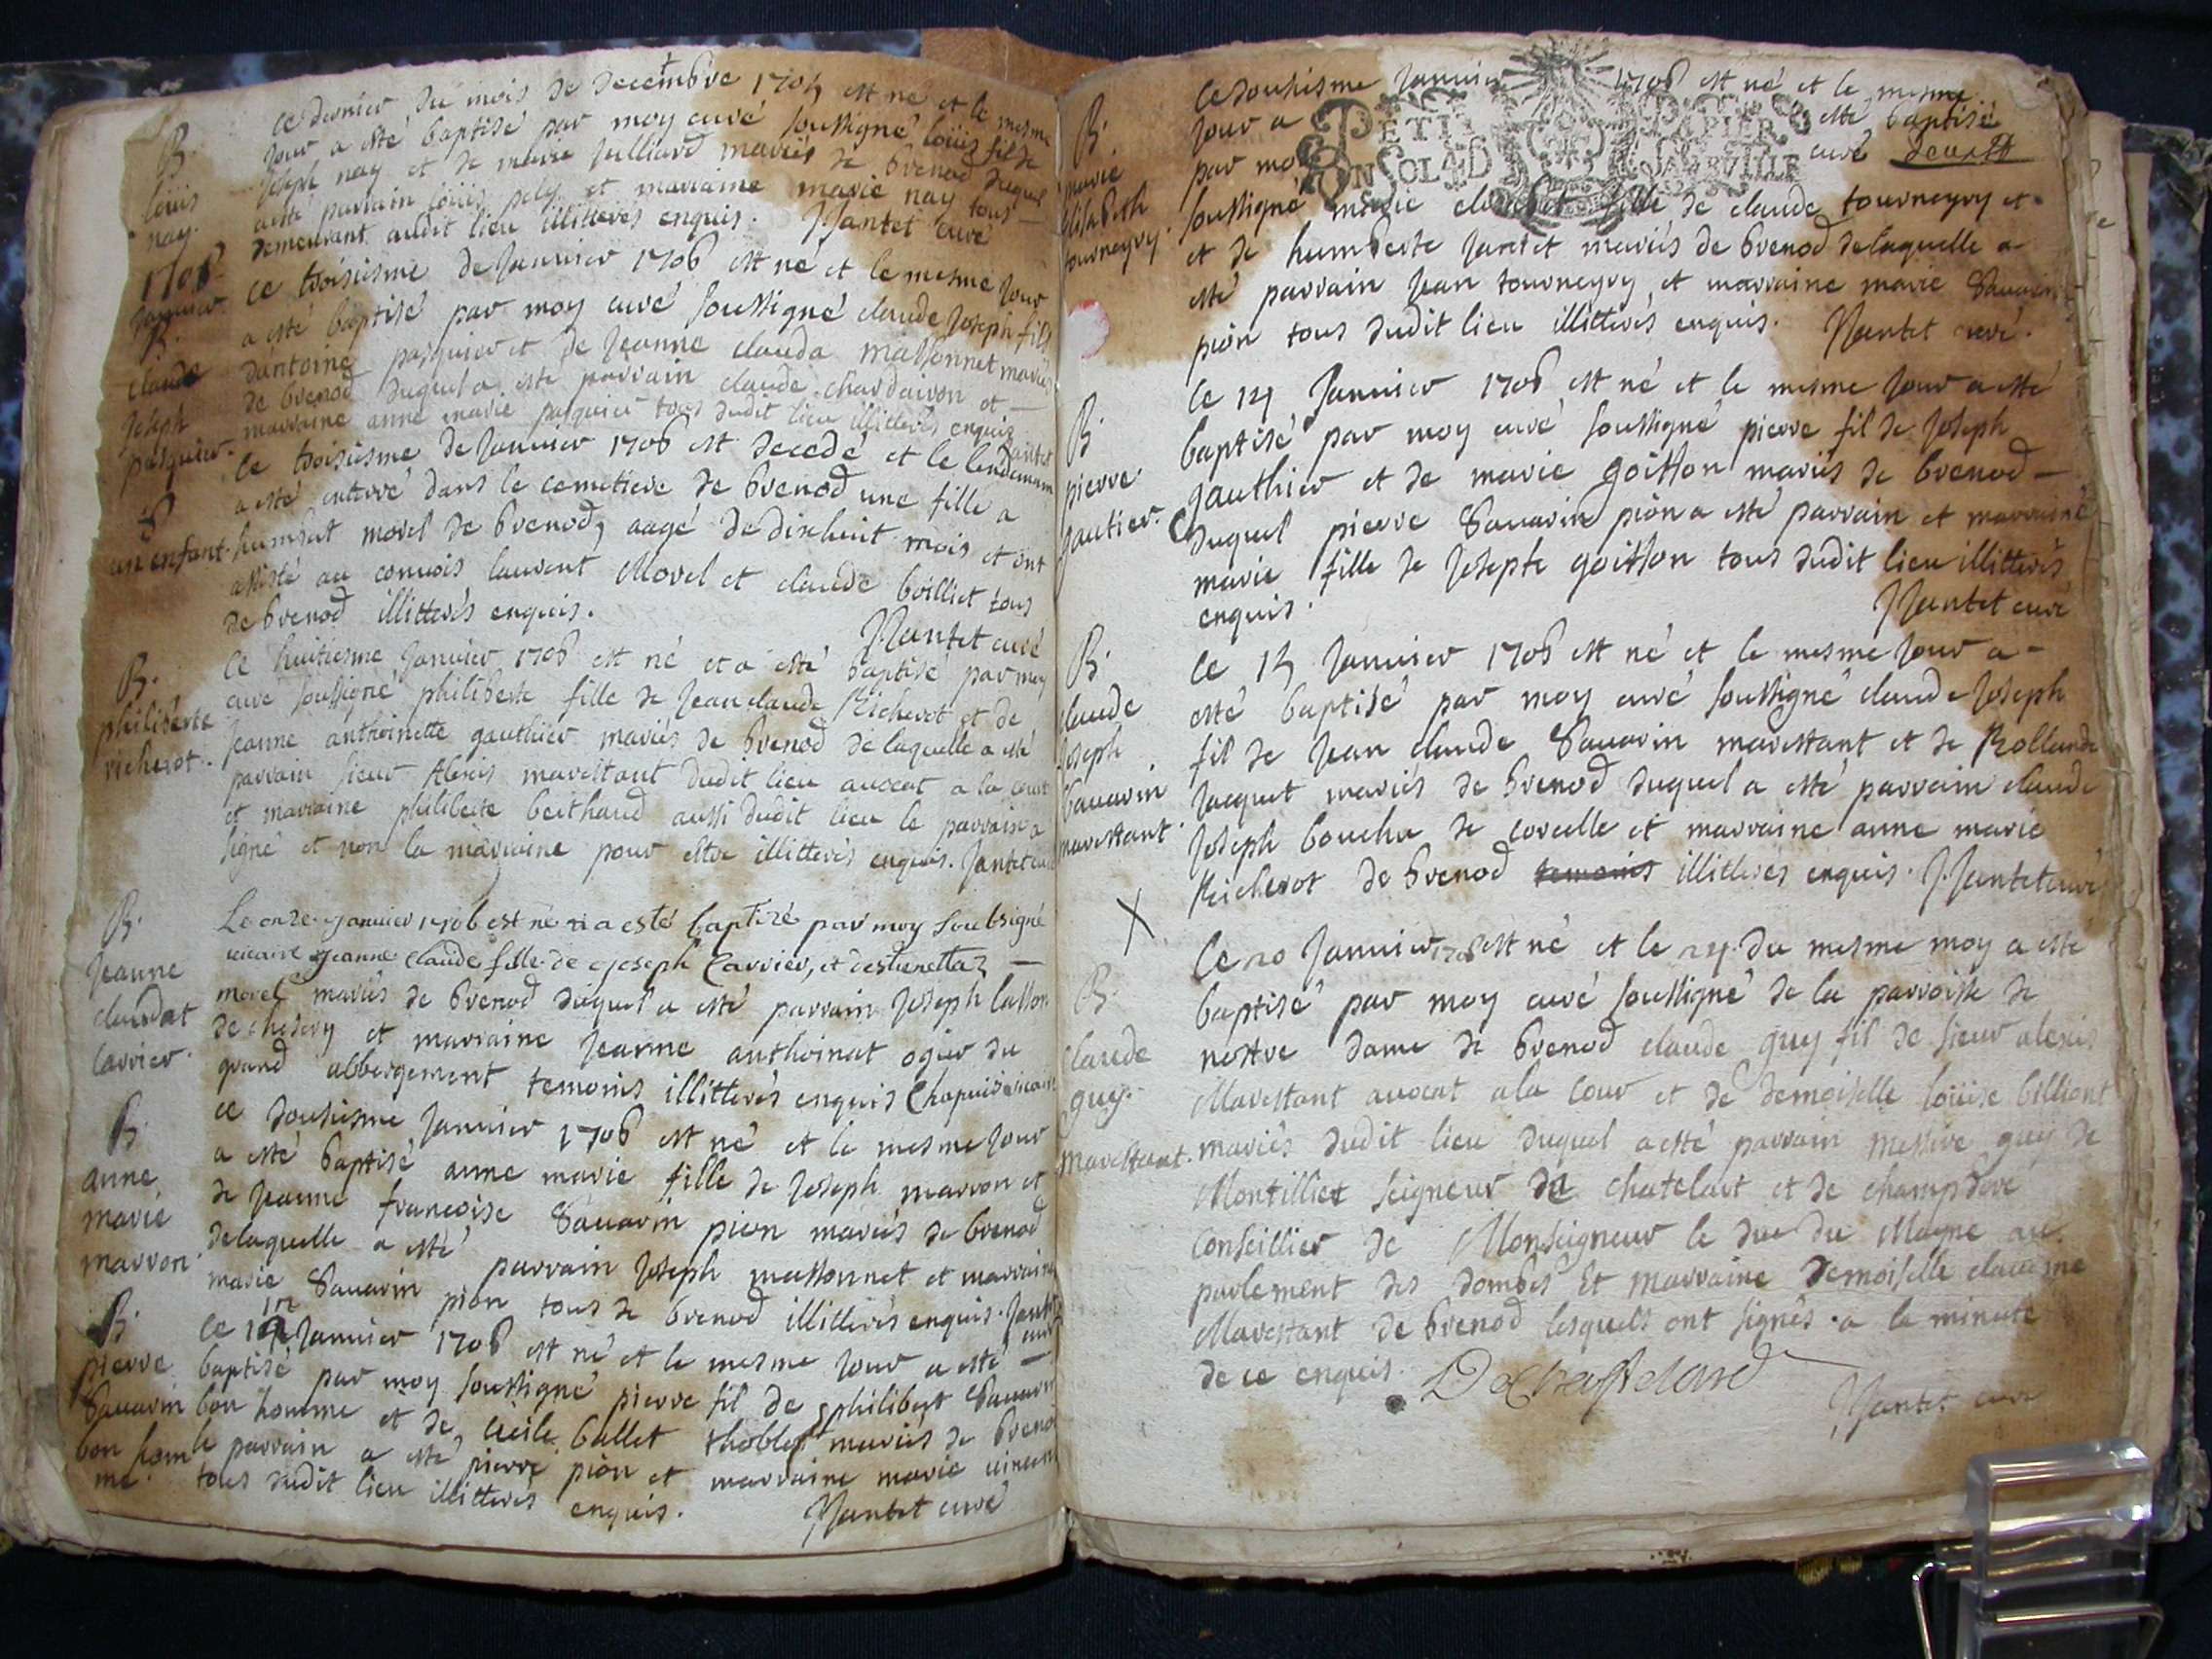 B.
louis
nay.
ce dernier du mois de decembre 1705 est né et le mesme
jour a esté baptisé par moy curé soussigné loüis fil de
Joseph nay et de marie Julliard mariés de brenod duquel
a esté parrain loüis et marraine marie nay tous
demeurant audit lieu illitterés enquis. Jantet curé
1706
Janvier.
B.
claude
Joseph
pasquier.
ce troisiesme de Janvier 1706 est né et le mesme jour
a esté baptisé par moy curé soussigné claude Joseph fils
d'antoine pasquier et de Jeanne clauda massonnet mariés
de brenod duquel a esté parrain claude chardeiron et
marraine anne marie pasquier tous dudit lieu illitterés enquis
Jantet
S
un enfant.
le troisiesme de Janvier 1706 est decedé et le lendemain
a esté enterré dans le cemetiere de brenod une fille a
humbert morel de brenod, aagé de dixhuit mois et ont
assisté au convois laurent Morel et claude boilliet tous
de brenod illitterés enquis.
Jantet curé
B.
philiberte
richerot.
ce huitiesme Janvier 1706 est né et a esté baptisé par moy
curé soussigné philiberte fille de Jean claude Richerot et de
Jeanne anthoinette gauthier mariés de brenod de laquelle a esté
parrain sieur Alexis marestant dudit lieu avocat a la cour
et marraine philiberte beithaud aussi dudit lieu le parrain a
signé et non la marraine pour estre illitterés enquis. Jantet curé
B.
Jeanne
claudat
carrier.
Le onze Janvier 1706 est né et a esté baptizé par moy soubsigné
vicaire Jeanne claude fille de Joseph Carrier, et d'estienettaz
morel mariés de brenod duquel a esté parrain Joseph lasson
de chesery et marraine Jeanne anthoinat ogier du
grand abbergement temoins illitterés enquis Chapuis vicaire
B.
anne
marie
marron
ce douzisme Janvier 1706 est né et le mesme jour
a esté baptisé anne marie fille de Joseph marron et
de Jeanne francoise Savarin pion mariés de brenod
de laquelle a esté parrain Joseph massonnet et marraine
marie Savarin pion tous de brenod illitterés enquis. Jantet
curé
B.
pierre
Savarin
bon hom
me
ce 12 Janvier 1706 est né et le mesme jour a esté
baptisé par moy soussigné pierre fil de philibert Savarin
bon homme et de cécile ballet mariés de brenod
le parrain a esté pierre pion et marraine marie
tous dudit lieu illitterés enquis. Jantet curé
PETIT PAPIER
UN SOL 4 D
B.
marie
elisabeth
tourneyry.
ce douzisme Janvier 1706 est né et le mesme
jour a esté baptisé
par moy curé
soussigné marie elisabet fille de claude tourneyry et
et de humberte Jantet mariés de brenod de laquelle a
esté parrain Jean tourneyry et marraine marie Savarin
pion tous dudit lieu illitterés enquis. Jantet curé.
B.
pierre
gautier.
le 14 Janvier 1706 est né et le mesme jour a esté
baptisé par moy curé soussigné pierre fil de Joseph
gauthier et de marie goisson mariés de brenod
duquel pierre Savarin pion a esté parrain et marraine
marie fille de Josepte goisson tous dudit lieu illitterés
enquis.
Jantet curé
B.
claude
Joseph
Savarin
marestant.
le 15 Janvier 1706 est né et le mesme jour a
esté baptisé par moy curé soussigné claude Joseph
fil de Jean claude Savarin marestant et de Rollande
Jacquet mariés de brenod duquel a esté parrain claude
Joseph bouchu de corcelle et marraine anne marie
Richerot de brenod temoins illitterés enquis. Jantet curé
X
B.
claude
guy.
marestant.
le 20 Janvier 1706 est né et le 24 du mesme moy a esté
baptisé par moy curé soussigné de la parroisse de
nostre dame de brenod claude guy fil de sieur alexis
Marestant avocat a la cour et de demoiselle loüise billiont
mariés dudit lieu duquel a esté parrain messire guy de
Montilliet seigneur du chatelart et de champdore
conseillier de Monseigneur le duc du Mayne au
parlement des dombes Et marraine Demoiselle
Marestant de brenod lesquels ont signés a la minute
de ce enquis. Dechastelard
Jantet curé